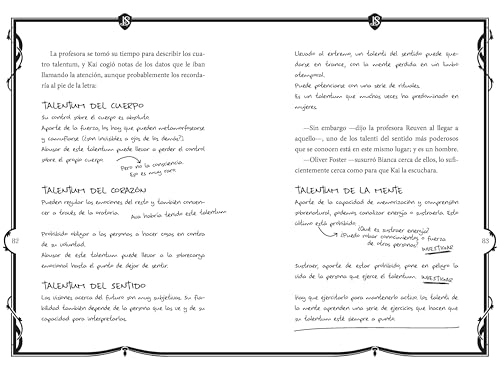 JS
La profesora se tomó su tiempo para describir los cua-
tro talentum, y Kai cogió notas de los datos que le iban
llamando la atención, aunque probablemente los recorda-
ría al pie de la letra:
TALENTUM DEL CUERPO
Su control sobre el cuerpo es absoluto.
Aparte de la fuerza, los hay que pueden metamorfosearse
y camuflarse (¿son invisibles a ojos de los demás?).
Abusar de este talentum puede llevar a perder el control
sobre el propio cuerpo.
Pero no la consciencia.
Eso es muy raro
TALENTUM DEL CORAZÓN
Pueden regular las emociones del resto y también conven-
cer a través de la oratoria.
Ava habría tenido este talentum
Prohibido obligar a las personas a hacer cosas en contra
de su voluntad.
Abusar de este talentum puede llevar a la sobrecarga
emocional hasta el punto de dejar de sentir.
TALENTUM DEL SENTIDO
Las visiones acerca del futuro son muy subjetivas. Su fia-
bilidad también depende de la persona que las ve y de su
capacidad para interpretarlas.
82
JS
Llevado al extremo, un talenti del sentido puede que-
darse en trance, con la mente perdida en un limbo
atemporal.
Puede potenciarse con una serie de rituales.
Es un talentum que muchas veces ha predominado en
mujeres.
—Sin embargo —dijo la profesora Reuven al llegar a
aquello—, uno de los talenti del sentido más poderosos
que se conocen está en este mismo lugar; y es un hombre.
—Oliver Foster —susurró Bianca cerca de ellos, lo sufi-
cientemente cerca como para que Kai la escuchara.
TALENTUM DE LA MENTE
Aparte de la capacidad de memorización y comprensión
sobrenatural, podemos canalizar energía o sustraerla. Esto
último está prohibido.
¿Qué es sustraer energía?
¿Puedo robar conocimientos o fuerza
de otras personas?
INVESTIGAR
Sustraer, aparte de estar prohibido, pone en peligro la
vida de la persona que ejerce el talentum.
INVESTIGAR
Hay que ejercitarlo para mantenerlo activo. Los talenti de
la mente aprenden una serie de ejercicios que hacen que
su talentum esté siempre a punto.
83